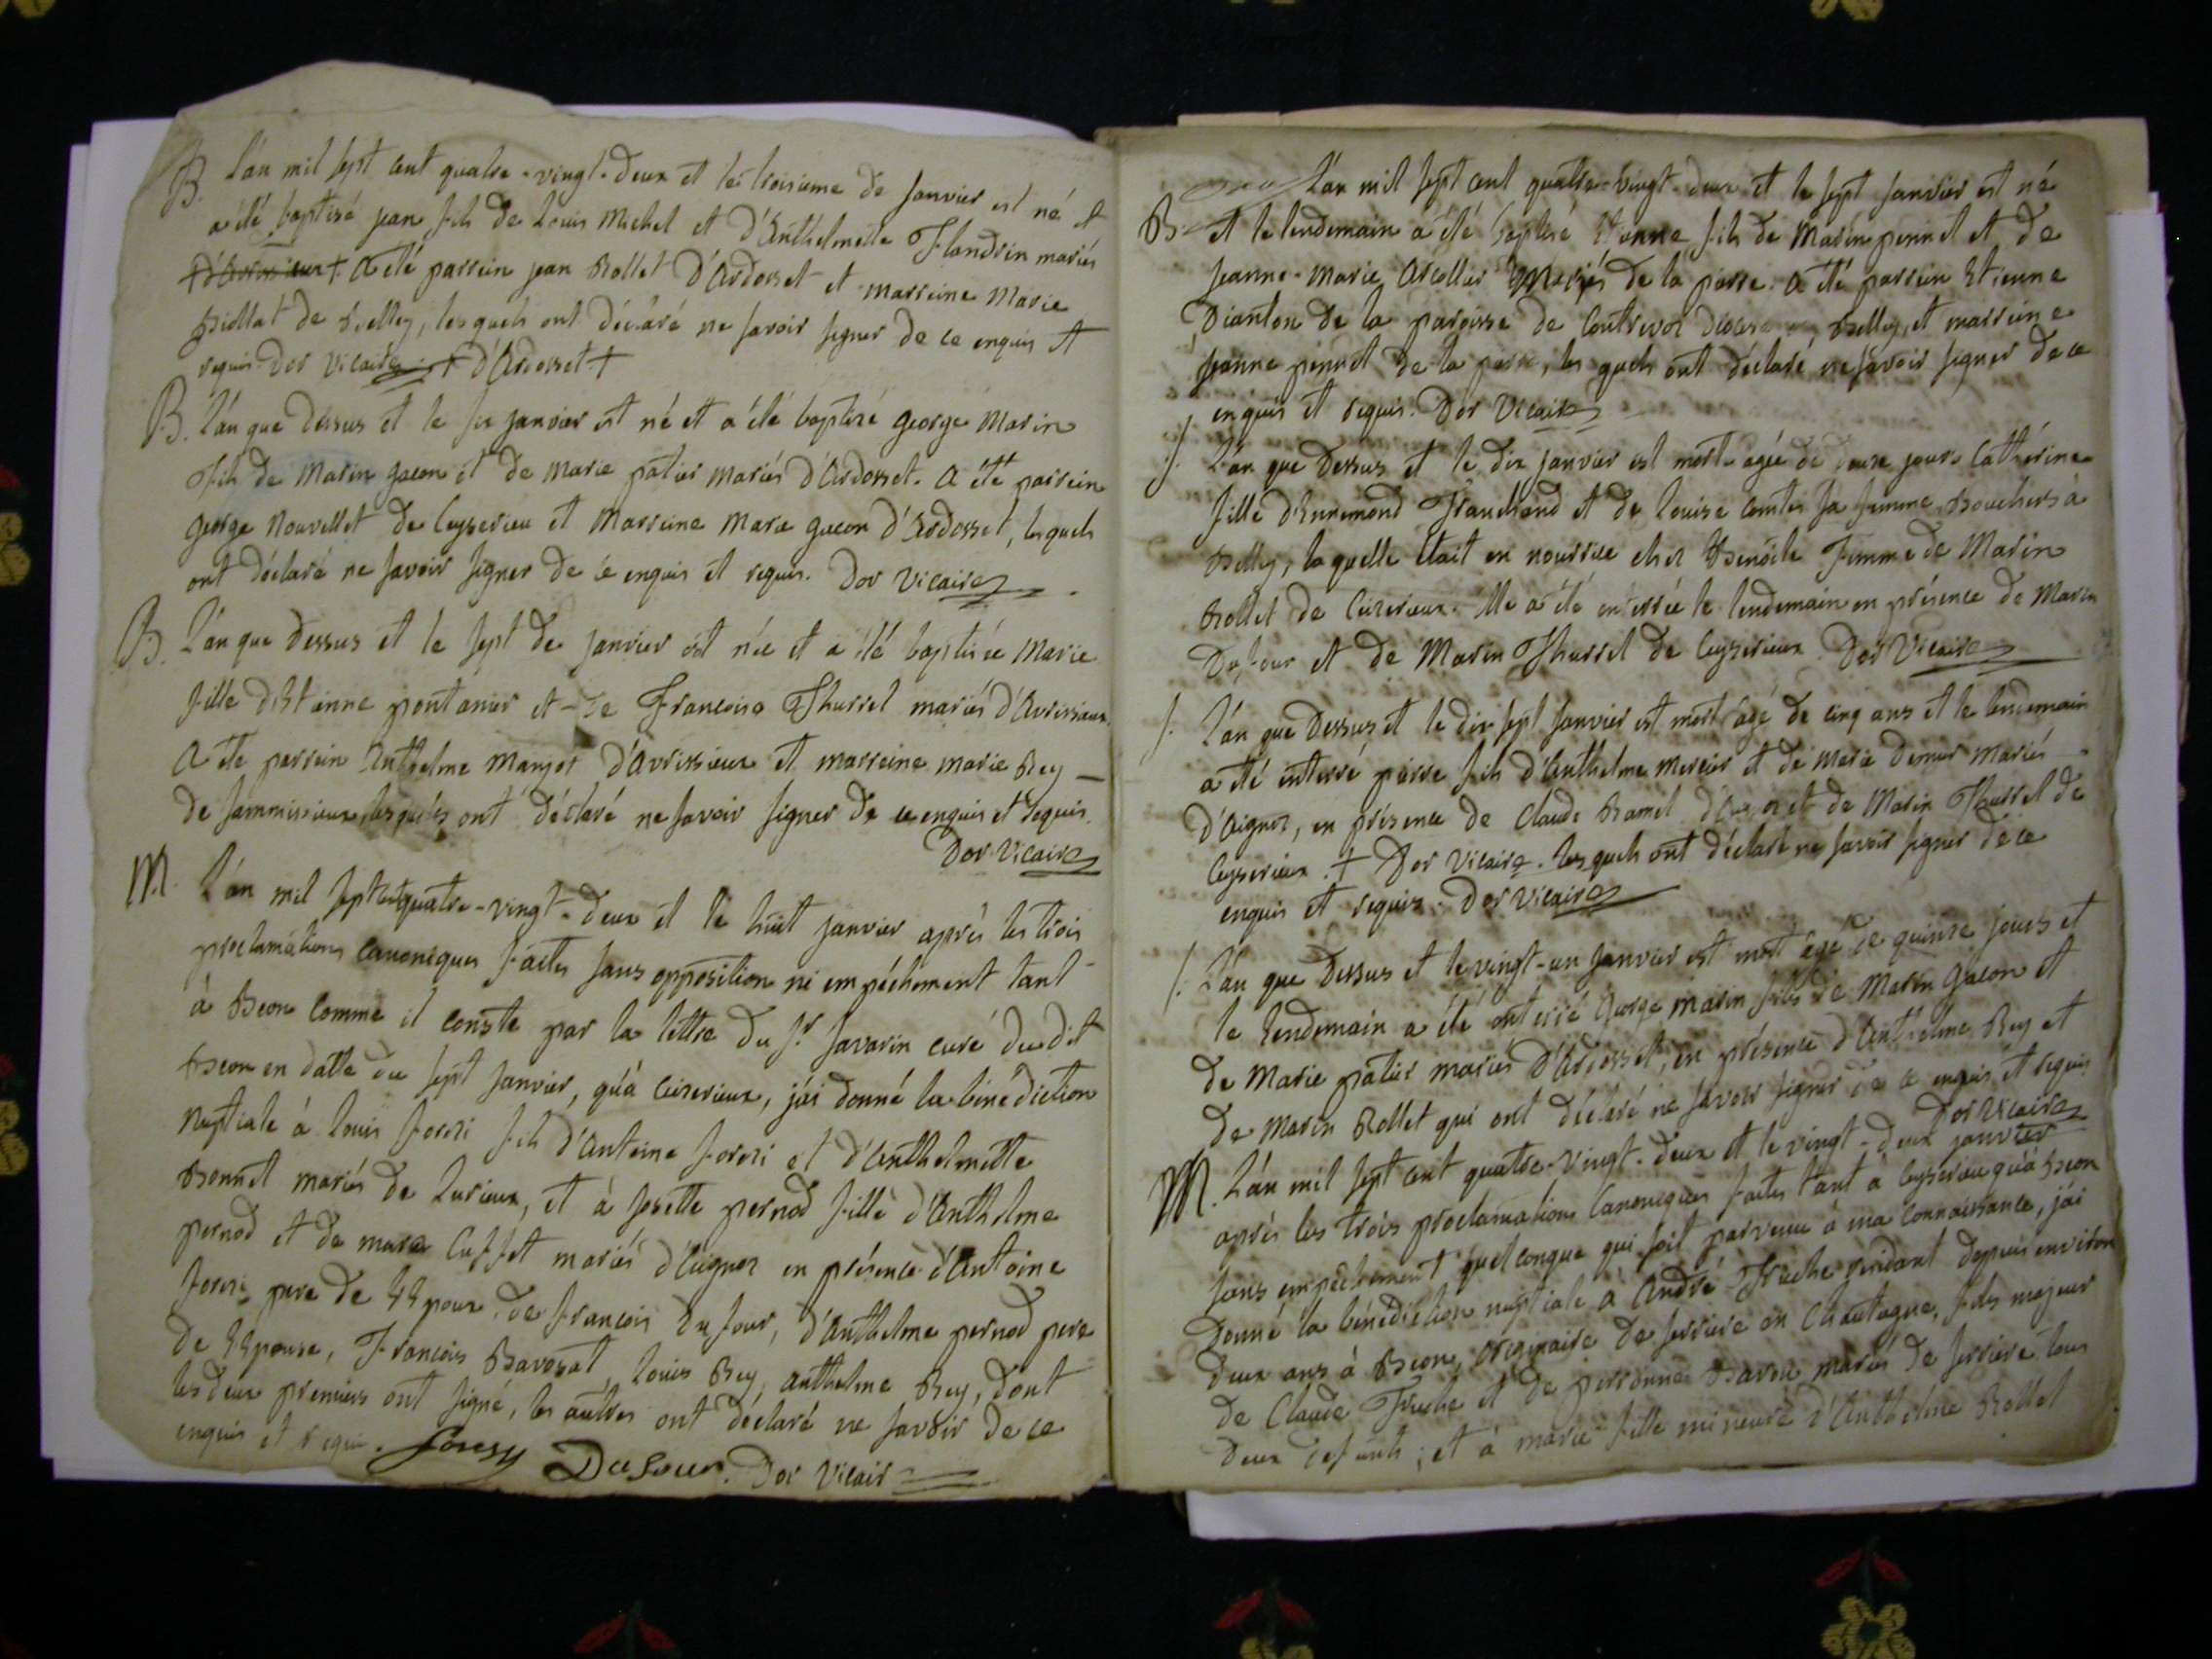 B. L'an mil sept cent quatre-vingt-deux et le troisieme de janvier est né et
a été baptisé jean fils de Louis Michel et d'Anthelmette Flandrin mariés
+ d'Avrissieux + a été parrein jean Rollet D'Ardosset et marreine Marie
Billat de Belley, lesquels ont déclaré ne savoir signer de ce enquis et
requis. Dor Vicaire + d'Ardosset +
B. L'an que dessus et le six janvier est né et a été baptisé george Marin
fils de Marin gacon et de marie patier mariés d'Ardosset. a été parrein
george Nouvellet de Ceyserieu et Marreine Marie gacon d'Ardosset, lesquels
ont déclaré ne savoir signer de ce enquis et requis. Dor Vicaire
B. L'an que dessus et le sept de janvier est née et a été baptisée Marie
fille d'Etienne pontanier et de Françoise Thurrel mariés d'Avrissieux.
a été parrein Anthelme Manjot d'Avrissieux et marreine marie Rey
de Sammissieux, lesquels ont déclaré ne savoir signer de ce enquis et requis.
Dor Vicaire
M. L'an mil sept cent quatre-vingt-deux et le huit janvier après les trois
proclamations canoniques faites sans opposition ni empéchement tant
à Beon comme il conste par la lettre du Sr. Savarin curé dudit
Beon en datte du sept janvier, qu'à Ceizerieux, j'ai donné la bénédiction
nuptiale à Louis foresi fils d'Antoine foresi et d'Anthelmette
Bonnet mariés de Lurieux, et à josette pernod fille d'Anthelme
pernod et de marie Cuffet mariés d'Aignoz en présence d'Antoine
foresi pere de l'Epoux, de françois Dufour, d'Anthelme pernod pere
de l'Epouse, François Bavosat, Louis Bey, anthelme Bey, dont
les deux premiers ont signé, les autres ont déclaré ne savoir de ce
enquis et requis. Foresy Dufour. Dor Vicair
L'an mil sept cent quatre-vingt-deux et le sept janvier est né
B. et le lendemain a été baptisé Etienne fils de Marin pennet et de
jeanne-Marie Arcollier Mariés de la parre. a été parrein Etienne
Dianton de la paroisse de Contrevoz Belley, et marreine
jeanne pennet de la parre, les quels ont déclaré ne savoir signer de ce
enquis et requis. Dor Vicaire
S. L'an que dessus et le dix janvier est morte agée de douze jours Cathérine
fille d'Ennemond Franchand et de Louise Comte sa femme Bouchers à
Belley, laquelle était en nourrice chez Benoîte Femme de Marin
Rollet de Ceizerieux. Elle a été enterrée le lendemain en présence de Marin
Dufour et de Marin Thurrel de Ceyserieux Dor Vicaire
S. L'an que Dessus et le dix sept janvier est mort agé de cinq ans et le lendemain
a été enterré pierre fils d'Anthelme mercier et de marie demur mariés
d'Aignoz, en présence de Claude Ramel et de Marin Thurrel de
Ceyserieux. + Dor Vicaire. les quels ont déclaré ne savoir signer de ce
enquis et requis. Dor Vicaire
S. L'an que Dessus et le vingt-un janvier est mort agé de quinze jours et
le lendemain a été enterré george marin fils de Marin gacon et
de Marie patier mariés d'Ardosset, en présence d'Anthelme Rey et
de Marin Rollet qui ont déclaré ne savoir signer de ce enquis et requis
Dor Vicaire
M. L'an mil sept cent quatre-vingt-deux et le vingt-deux janvier
après les trois proclamations Canoniques faites tant à Ceyserieu qu'à Beon
sans empêchement quelconque qui soit parvenu à ma connaissance, j'ai
donné la bénédiction nuptiale à André Truche residant depuis environ
deux ans à Beon, originaire de serriere en Chautagne, fils majeur
de Claude Truche et de perronne Baron mariés de serriere tous
deux defunts ; et à marie fille mineure d'Anthelme Rollet